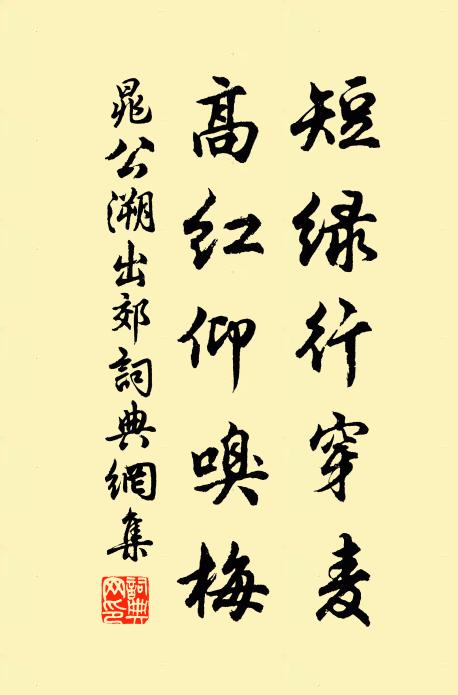 短绿行穿麦
高红仰嗅梅
晁公溯出郊詞典網集
詞典网印